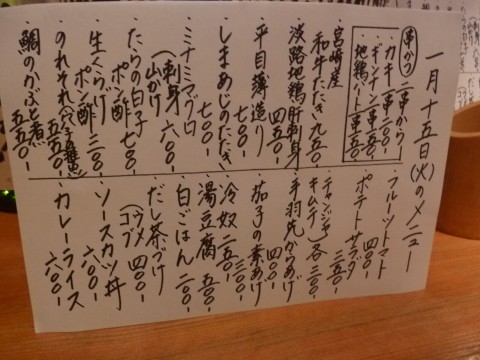 一月十五日(火)のメニュー
串かつ 二串から
・カキ 一串二〇〇
・ギンナン 一串一〇〇
・地鶏ハート 一串一五〇
・宮崎産
和牛たたき 九五〇
・淡路地鶏肝刺身
四五〇
・平目薄造り
七〇〇
・しまあじのたたき
七〇〇
・ミナミマグロ
(刺身
山かけ 六〇〇
・たらの白子
ポン酢 七〇〇
・生くらげ
ポン酢 三〇〇
・のれそれ(穴子稚魚)
五五〇
・鯛のかぶと煮
五五〇
・フルーツトマト
四〇〇
・ポテトサラダ
三五〇
・チャンジャ
キムチ 各三〇〇
・手羽先からあげ
四〇〇
・茄子の素あげ
三五〇
・冷奴 二五〇
・湯豆腐 五〇〇
・白ごはん 二〇〇
・だし茶づけ
(ウメ
コブ 四〇〇
・ソースカツ丼
六〇〇
・カレーライス
六〇〇